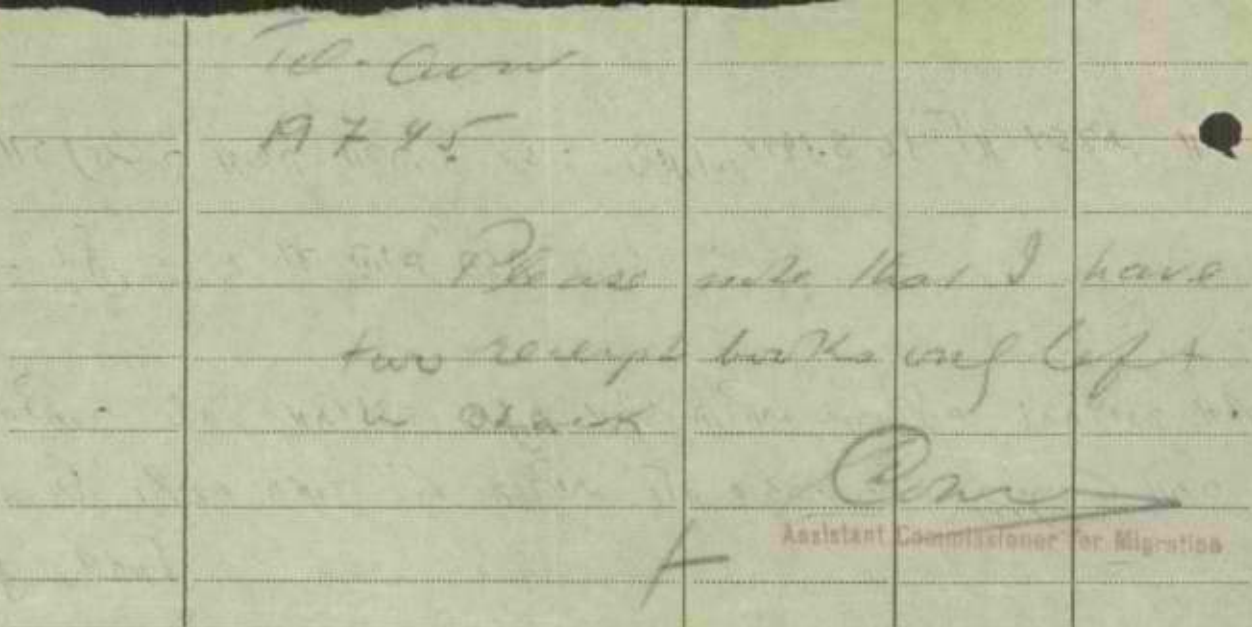 Tel-Aviv
19.7.45.
Please note that I have
two receipt books only left
in stock
Assistant Commissioner for Migration